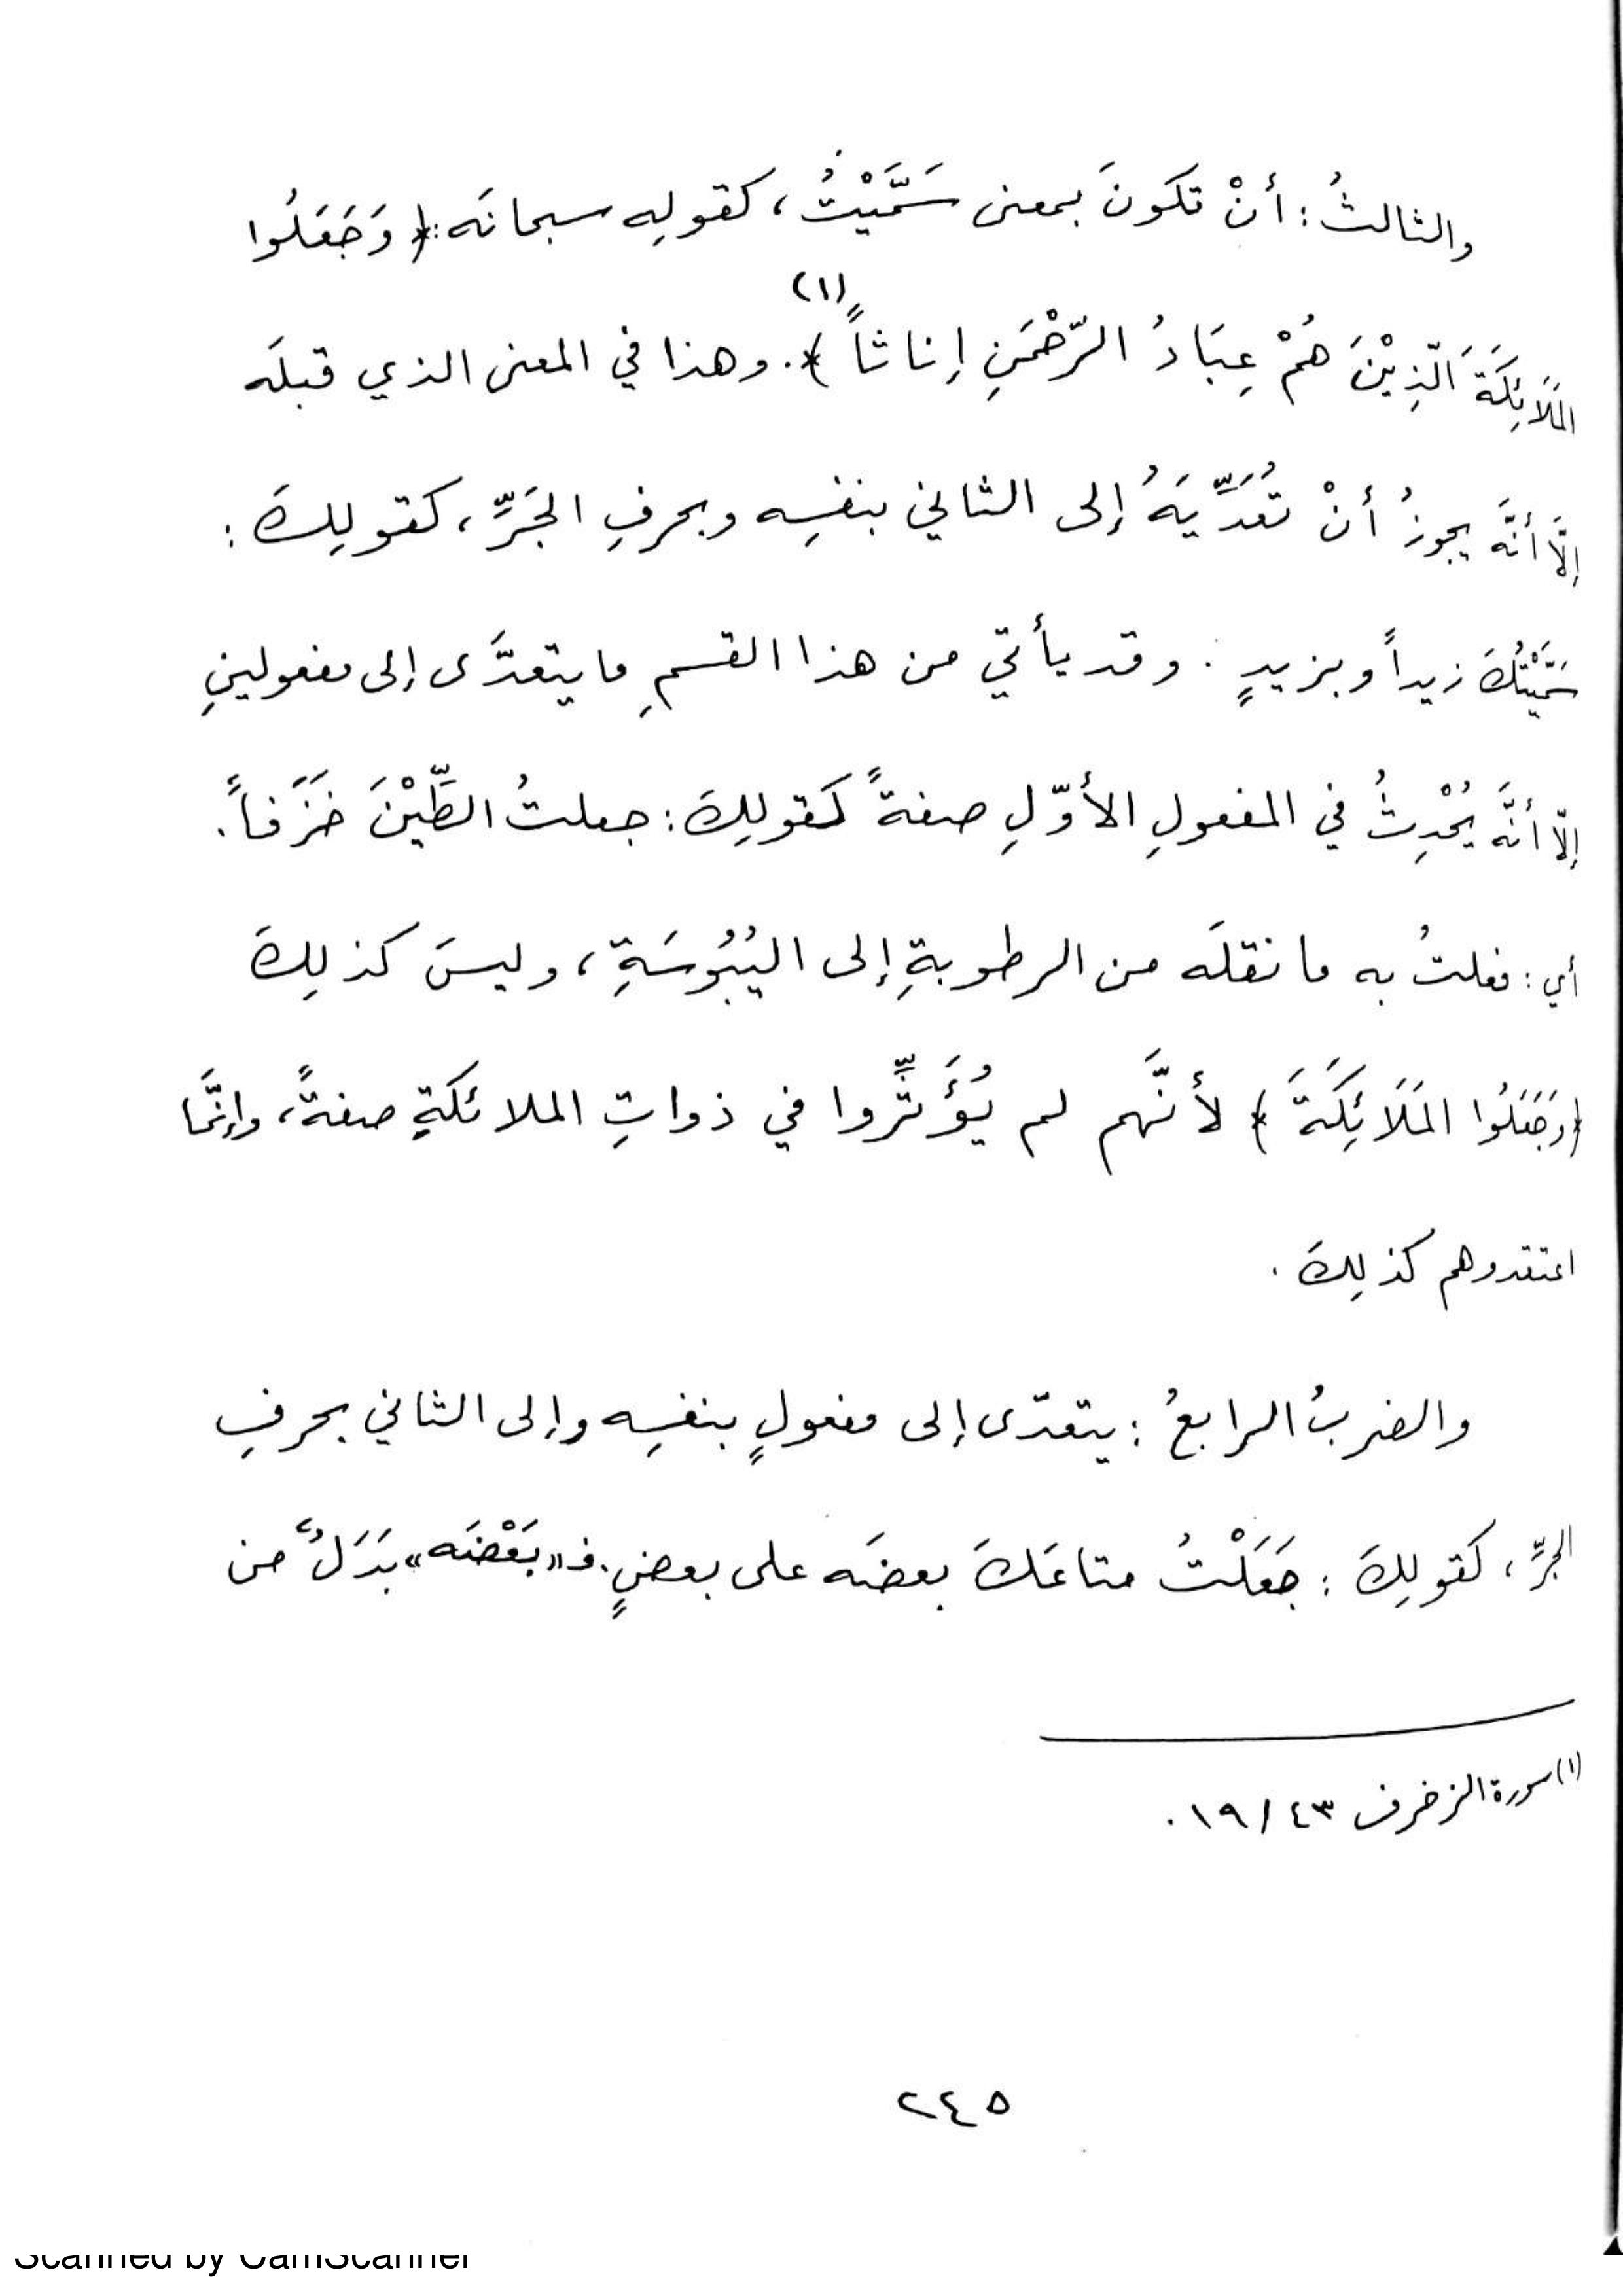 والثالثُ: أنْ تكونَ بمعنى سَمَّيْتُ، كقولِه سبحانَه: ﴿وَجَعَلُوا
المَلَائِكَةَ الَّذِيْنَ هُمْ عِبَادُ الرَّحْمَنِ إِناثاً﴾(١). وهذا في المعنى الذي قبلَه
إلَّا أنَّه يجوزُ أنْ تُعَدِّيَهُ إلى الثاني بنفسِه وبحرفِ الجَرِّ، كقولِكَ:
سَمَّيْتُكَ زيداً وبزيدٍ. وقد يأتي من هذا القسمِ ما يتعدَّى إلى مفعولينِ
إلّا أنَّه يُحْدِثُ في المفعولِ الأوّلِ صفةً كَقولِكَ: جعلتُ الطِّيْنَ خَزَفاً.
أي: فعلتُ به ما نقلَه من الرطوبةِ إلى اليُبُوسَةِ، وليسَ كذلِكَ
﴿وَجَعَلُوا المَلَائِكَةَ﴾ لأنَّهم لم يُؤَثِّروا في ذواتِ الملائكَةِ صفةً، وإنَّما
اعتقدوهم كذلِكَ.
والضربُ الرابعُ: يتعدّى إلى مفعولٍ بنفسِه وإلى الثاني بحرفِ
الجرِّ، كَقولِكَ: جَعَلْتُ متاعَكَ بعضَه على بعضٍ. فـ«بَعْضَه» بَدَلٌ من
(١) سورة الزخرف ٤٣/١٩.
٢٤٥
Scanned by CamScanner